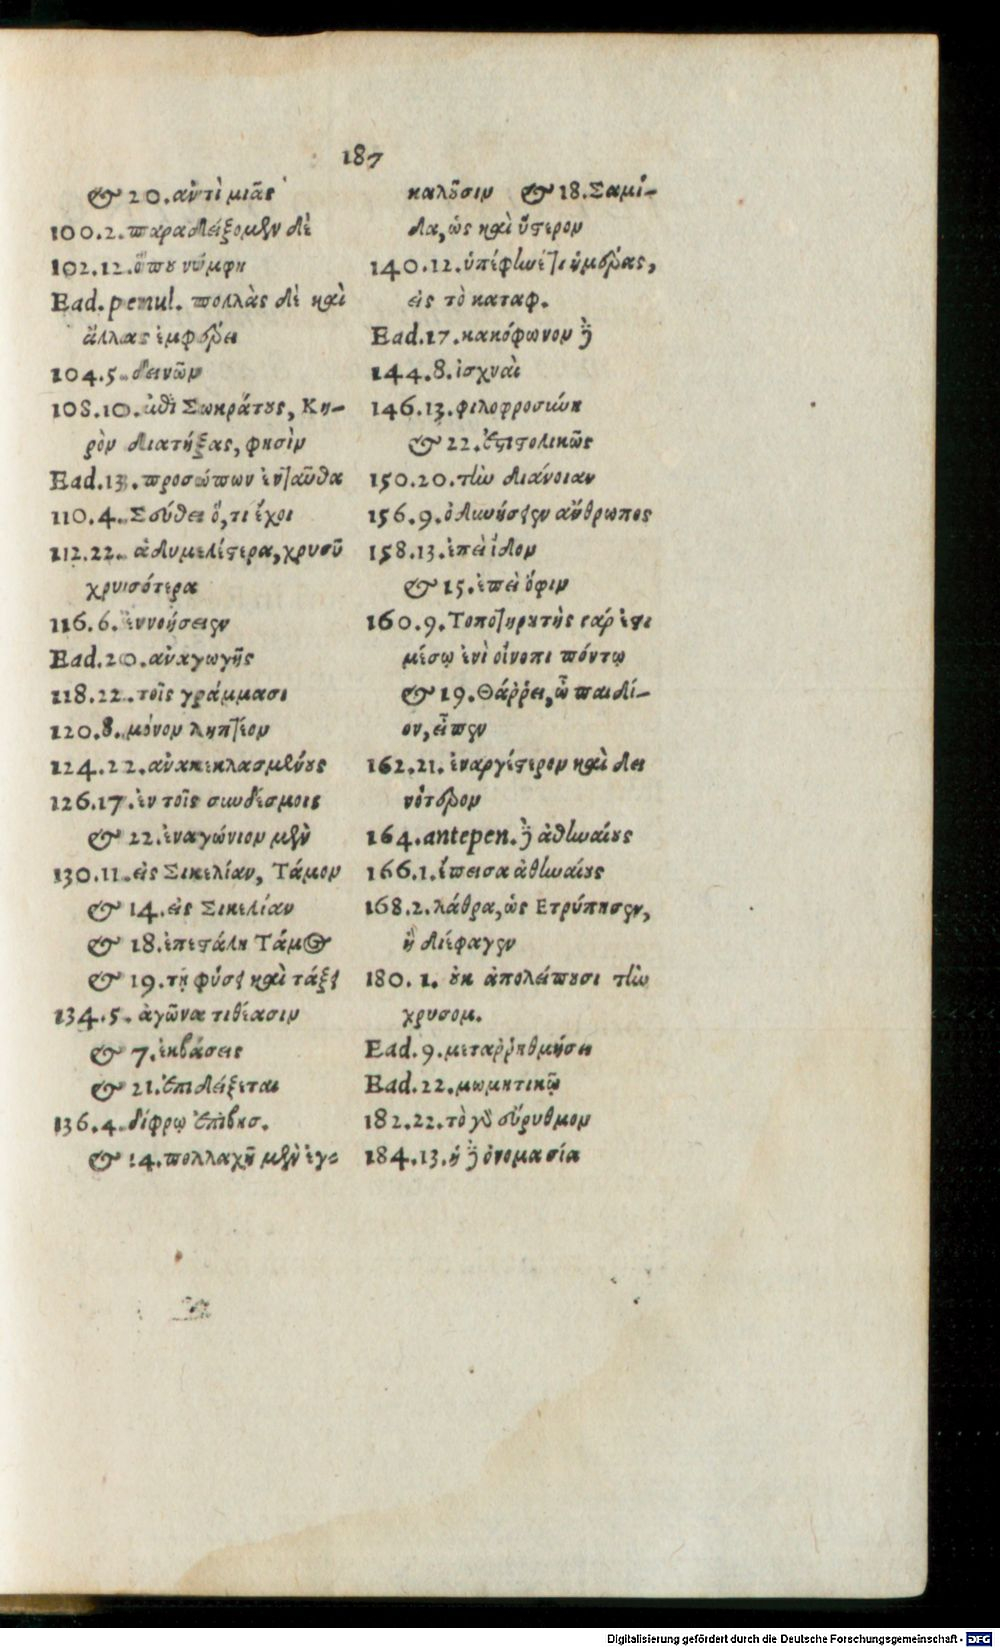 187
& 20. ἀντὶ μιᾶς
100.2. παραδείξομεν δὲ
102.12. ὅπου νύμφη
Ead. penul. πολλὰς δὲ καὶ
ἄλλας ἐμφέρει
104.5. δεινῶν
108.10. ἀντὶ Σωκράτους, Κη-
ρὸν διατήξας, φησὶν
Ead. 13. προσώπων ἐνταῦθα
110.4. Σούθει ὅ,τι ἔχοι
112.22. ἁδυμελέστερα, χρυσοῦ
χρυσότερα
116.6. ἐννοήσειεν
Ead. 20. ἀναγωγῆς
118.22. τοῖς γράμμασι
120.8. μόνον ληπτέον
124.22. ἀνακεκλασμένους
126.17. ἐν τοῖς συνδέσμοις
& 22. ἐναγώνιον μὲν
130.11. εἰς Σικελίαν, Τάμον
& 14. εἰς Σικελίαν
& 18. ἐπεστάλη Τάμος
& 19. τῇ φύσει καὶ τάξει
134.5. ἀγῶνα τιθέασιν
& 7. ἐκβάσεις
& 21. ἐπιδείξεται
136.4. δίφρῳ ἐπιβησ.
& 14. πολλαχῆ μὲν ἐγ-
καλοῦσιν & 18. Σαμί-
δα, ὡς καὶ ὕστερον
140.12. ἡμέρας,
εἰς τὸ καταφ.
Ead. 17. κακόφωνον
144.8. ἰσχναὶ
146.13. φιλοφροσύνη
& 22. ἐπιστολικῶς
150.20. τὴν διάνοιαν
156.9. ὁ δικνήσειεν ἄνθρωπος
158.13. ἐπεὶ ἴδον
& 15. ἐπεὶ ὄφιν
160.9. ἐστι
μέσῳ ἐνὶ οἴνοπι πόντῳ
& 19. Θάῤῥει, ὦ παιδί-
ον, εἶπεν
162.21. ἐναργέστερον καὶ δει
νότερον
164. antepen. ἀθηναίους
166.1. ἔπεισα ἀθηναίους
168.2. λάθρα, ὡς Ετρύπησεν,
ἢ διέφαγεν
180.1. οὐκ ἀπολείπουσι τὴν
χρυσομ.
Ead. 9. μεταῤῥυθμήσει
Ead. 22. μωμητικῷ
182.22. τὸ γὰρ εὔρυθμον
184.13. ἡ ὀνομασία
Digitalisierung gefördert durch die Deutsche Forschungsgemeinschaft - DFG